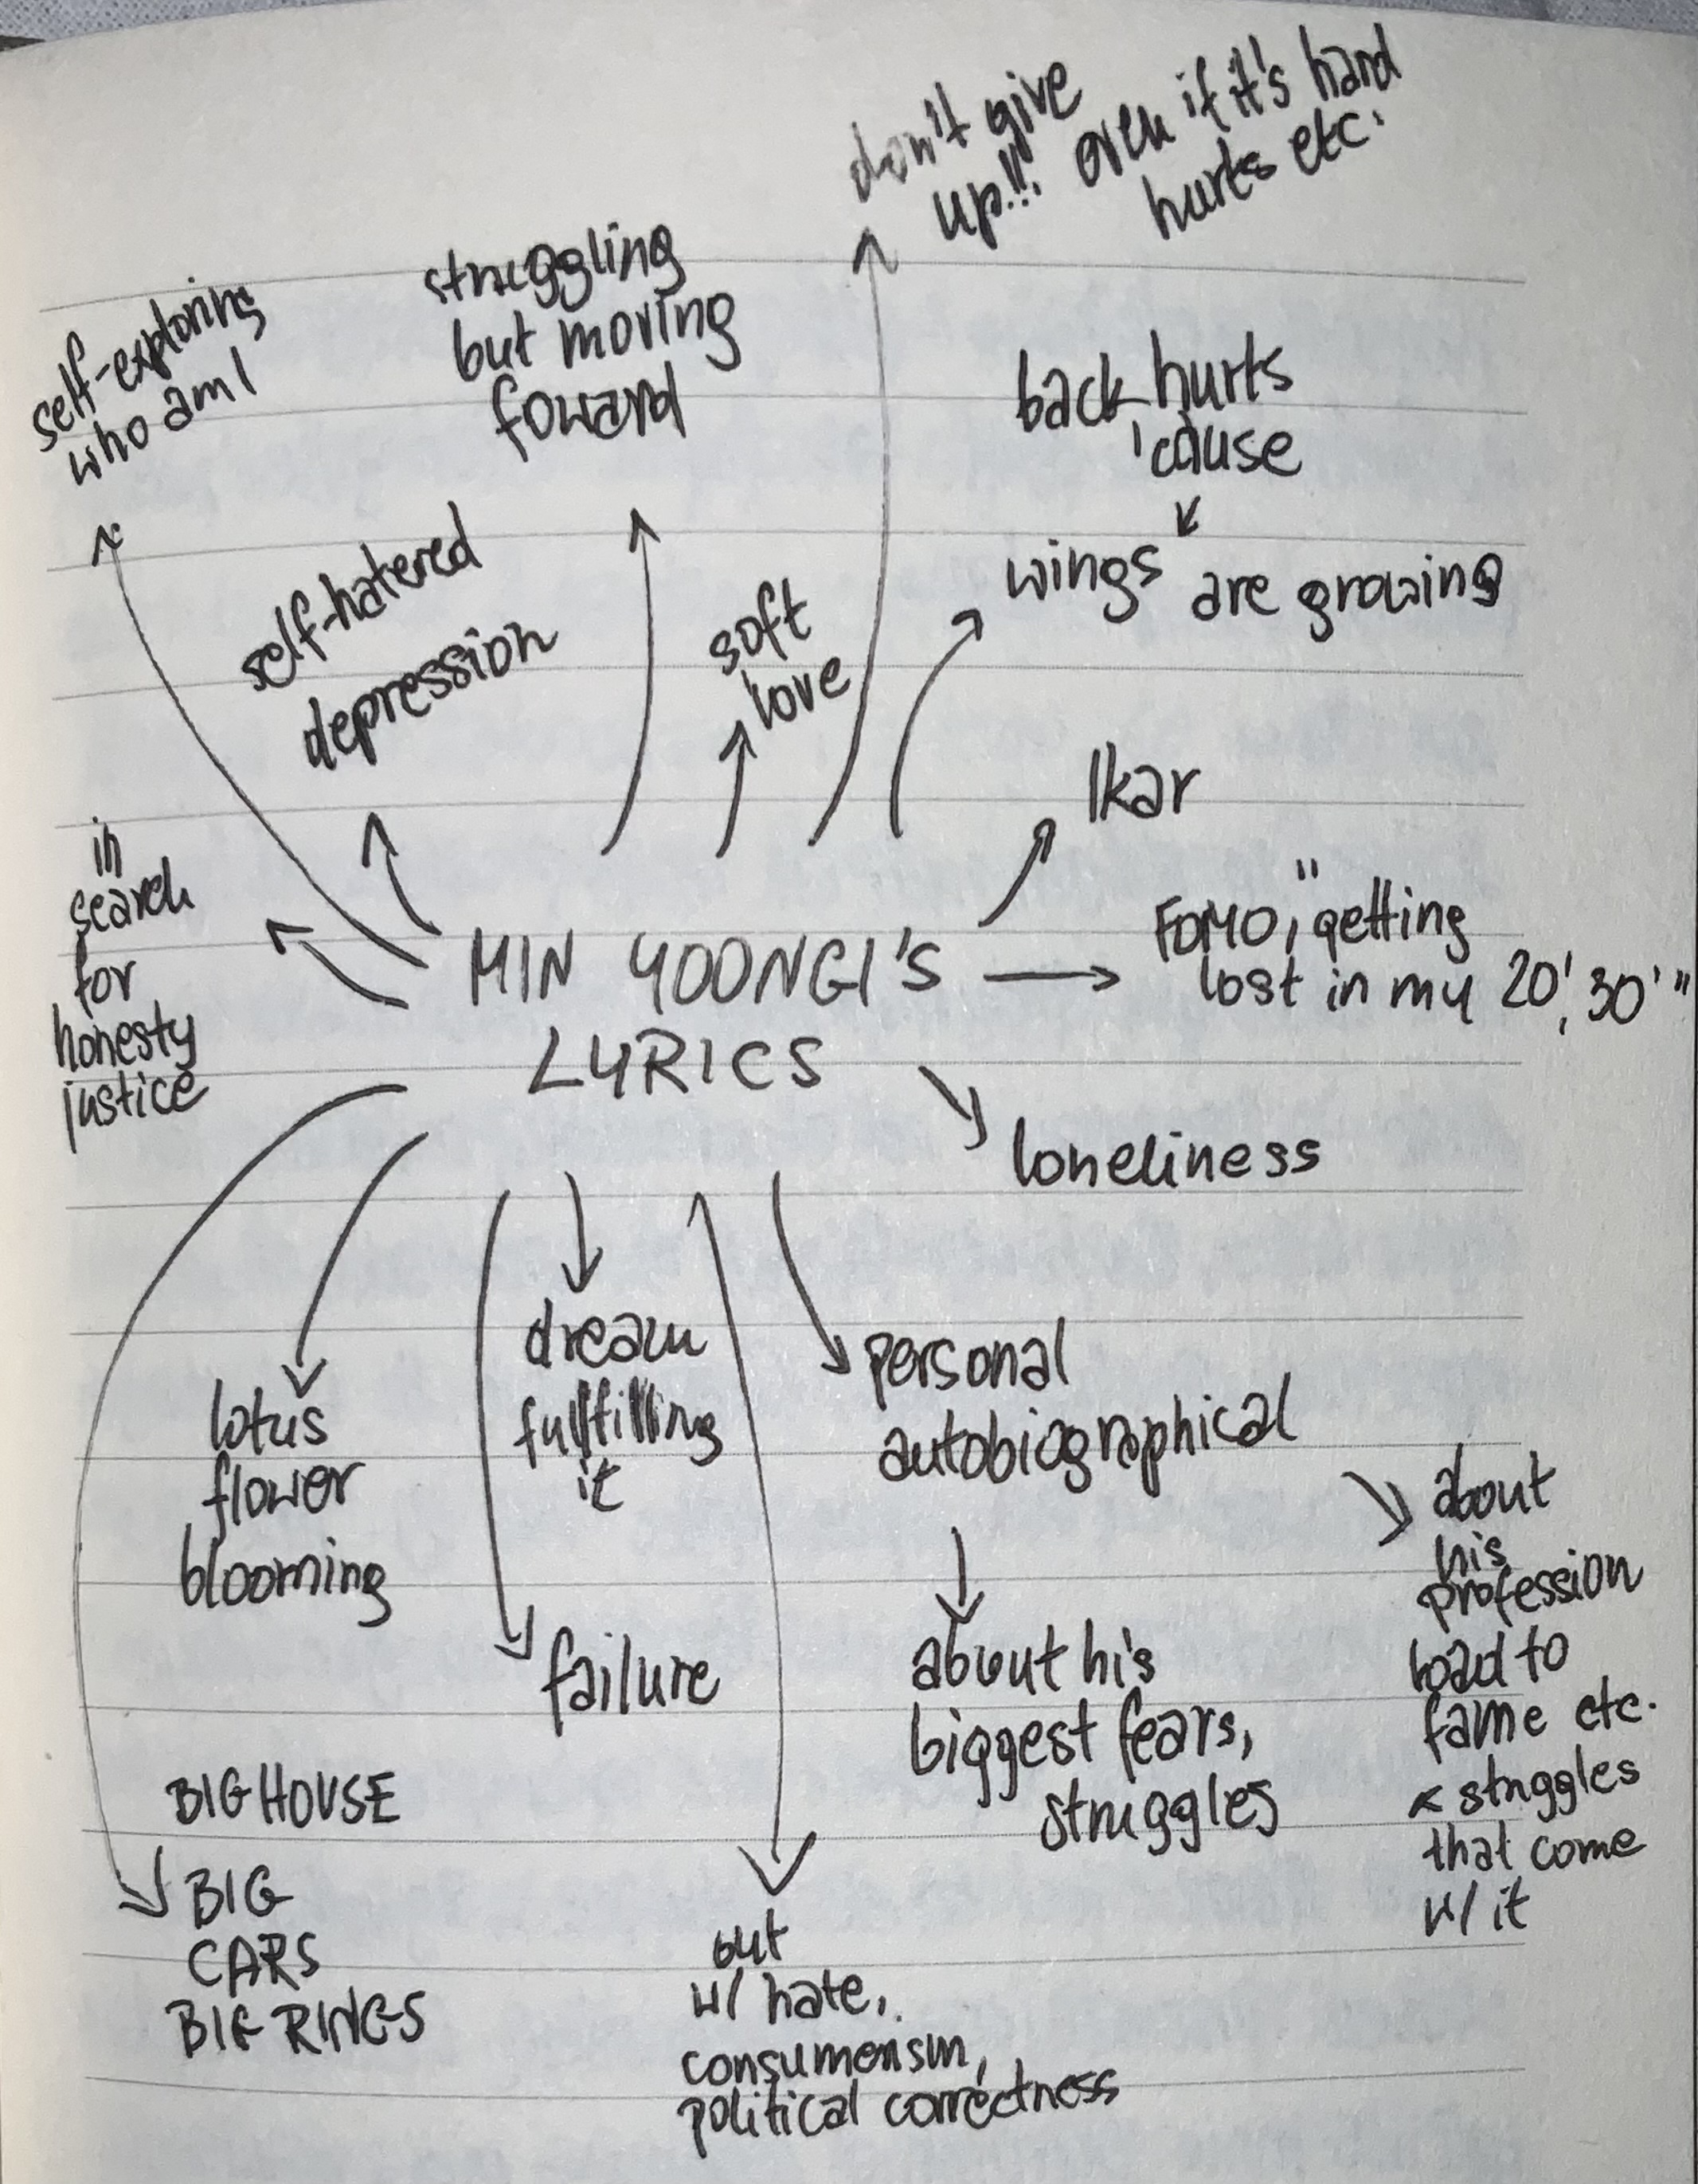 don't give
up!!! even if it's hard
hurts etc.
struggling
but moving
foward
self-exploring
who am I
back hurts
'cause
wings are growing
self-hatered
depression
soft
love
Ikar
in
search
for
honesty
justice
FOMO, "getting
lost in my 20', 30'"
MIN YOONGI'S
LYRICS
loneliness
lotus
flower
blooming
dream
fullfilling
it
personal
autobiographical
failure
about his
biggest fears,
struggles
about
his
profession
road to
fame etc.
struggles
that come
w/ it
BIG HOUSE
BIG
CARS
BIG RINGS
out
w/ hate,
consumensm,
political correctness